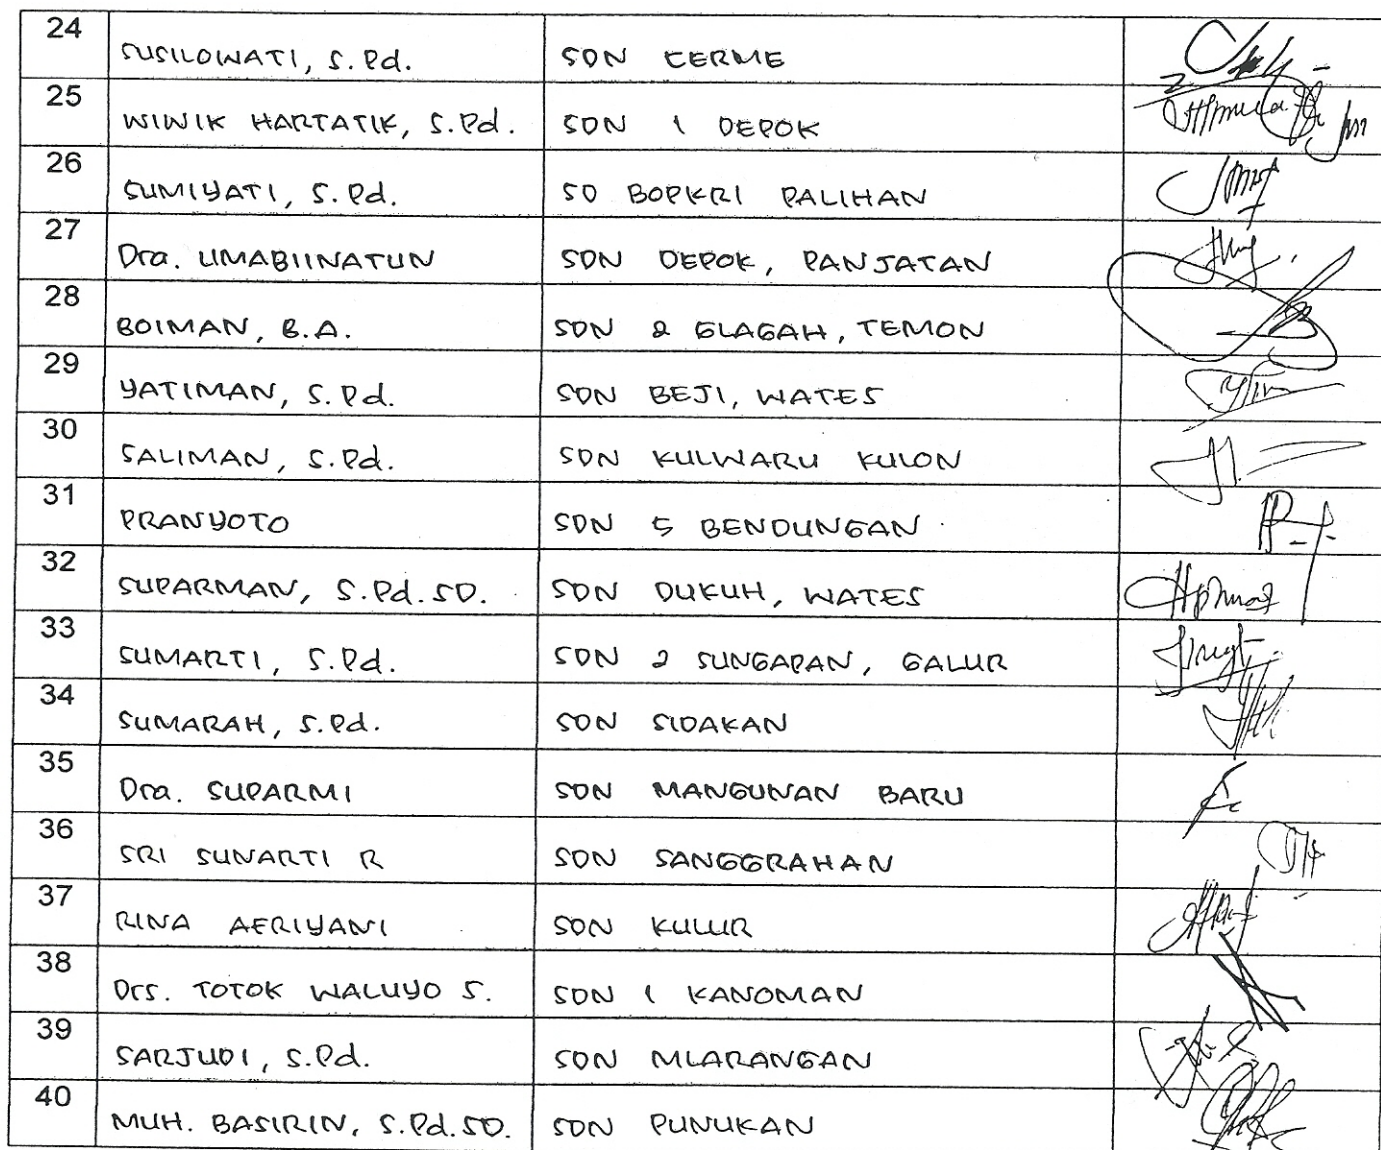 24 SUSILOWATI, S.Pd. SDN CERME
25 WINIK HARTATIK, S.Pd. SDN 1 DEPOK
26 SUMIYATI, S.Pd. SD BOPKRI PALIHAN
27 Dra. UMABIINATUN SDN DEPOK, PANJATAN
28 BOIMAN, B.A. SDN 2 GLAGAH, TEMON
29 YATIMAN, S.Pd. SDN BEJI, WATES
30 SALIMAN, S.Pd. SDN KULWARU KULON
31 PRANYOTO SDN 5 BENDUNGAN
32 SUPARMAN, S.Pd.SD. SDN DUKUH, WATES
33 SUMARTI, S.Pd. SDN 2 SUNGAPAN, GALUR
34 SUMARAH, S.Pd. SDN SIDAKAN
35 Dra. SUPARMI SDN MANGUNAN BARU
36 SRI SUNARTI R SDN SANGGRAHAN
37 RINA AFRIYANI SDN KULUR
38 Drs. TOTOK WALUYO S. SDN 1 KANOMAN
39 SARJUDI, S.Pd. SDN MLARANGAN
40 MUH. BASIRIN, S.Pd.SD. SDN PUNUKAN